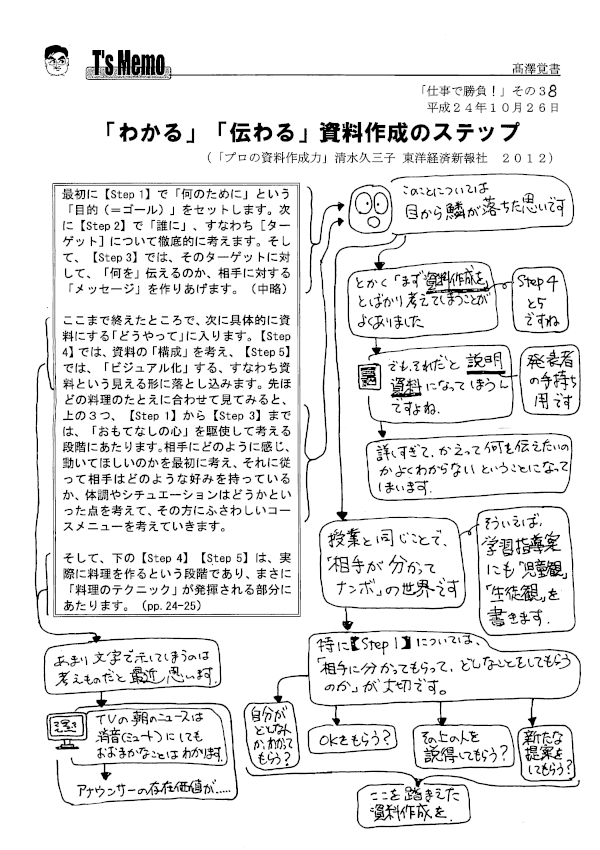 T's Memo
髙澤覚書
「仕事で勝負！」その38
平成24年10月26日
「わかる」「伝わる」資料作成のステップ
（「プロの資料作成力」清水久三子 東洋経済新報社 2012）
最初に【Step 1】で「何のために」という
「目的（＝ゴール）」をセットします。次
に【Step 2】で「誰に」、すなわち［ター
ゲット］について徹底的に考えます。そし
て、【Step 3】では、そのターゲットに対
して、「何を」伝えるのか、相手に対する
「メッセージ」を作りあげます。（中略）
ここまで終えたところで、次に具体的に資
料にする「どうやって」に入ります。【Step
4】では、資料の「構成」を考え、【Step 5】
では、「ビジュアル化」する、すなわち資
料という見える形に落とし込みます。先ほ
どの料理のたとえに合わせて見てみると、
上の３つ、【Step 1】から【Step 3】まで
は、「おもてなしの心」を駆使して考える
段階にあたります。相手にどのように感じ、
動いてほしいのかを最初に考え、それに従
って相手はどのような好みを持っている
か、体調やシチュエーションはどうかとい
った点を考えて、その方にふさわしいコー
スメニューを考えていきます。
そして、下の【Step 4】【Step 5】は、実
際に料理を作るという段階であり、まさに
「料理のテクニック」が発揮される部分に
あたります。（pp.24-25）
このことについては
目から鱗が落ちた思いです
とかく「まず資料作成を」
とばかり考えてしまうことが
よくありました
Step 4
と5
ですね
でもそれだと説明
資料になってしまうん
ですよね.
発表者
の手持ち
用です
詳しすぎて、かえって何を伝えたいの
かよくわからないということになって
しまいます.
授業と同じことで、
「相手が分かって
ナンボ」の世界です
そういえば、
学習指導案
にも「児童観」
「生徒観」を
書きます.
特に【Step 1】については、
「相手に分かってもらって、どんなことをしてもらう
のか」が大切です。
自分が
どんな人
か、わかって
もらう？
OKをもらう？
その上の人を
説得してもらう？
新たな
提案を
してもらう？
ここを踏まえた
資料作成を.
あまり文字で示してしまうのは
考えものだと最近思います.
TVの朝のニュースは
消音(ミュート)にしても
おおまかなことはわかります.
アナウンサーの存在価値が.....